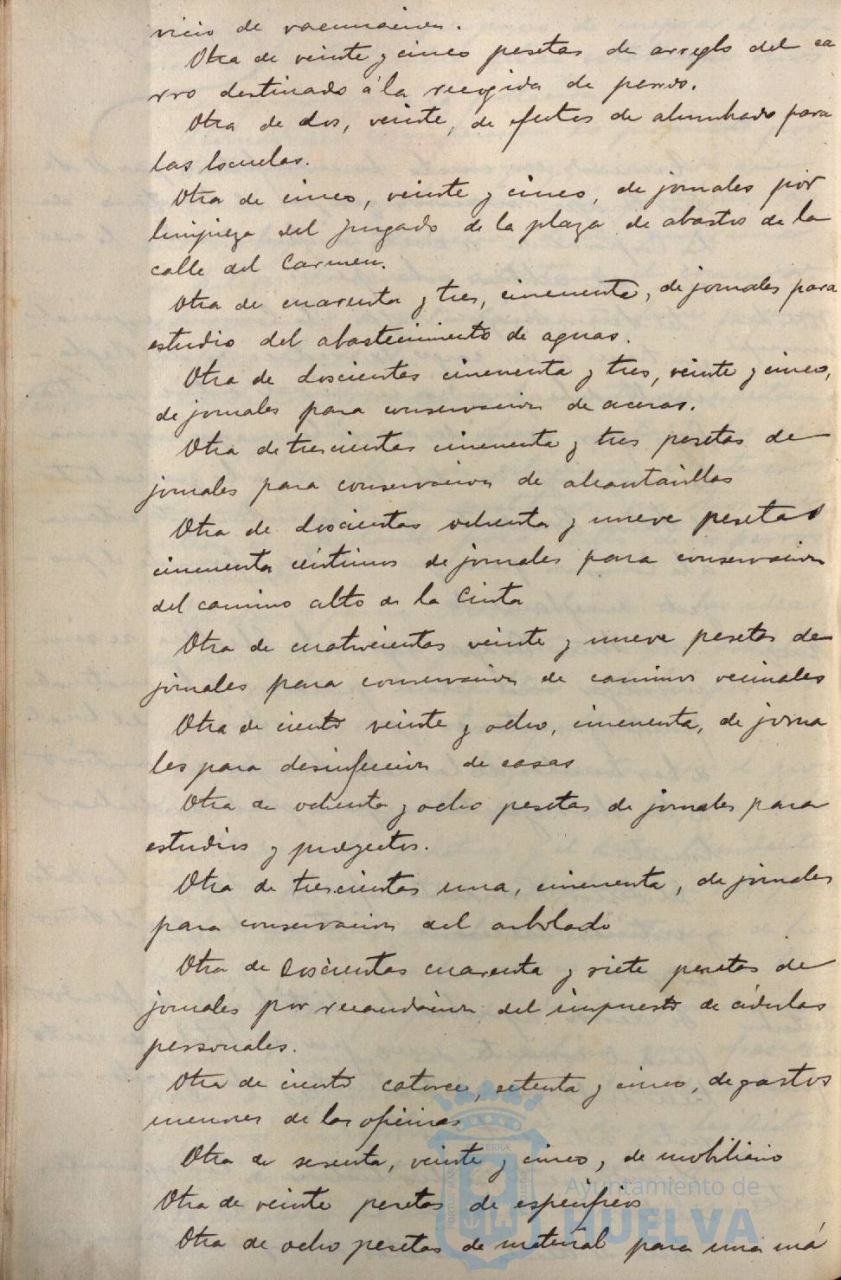 vicio de vacunacion.
Otra de veinte y cinco pesetas de arreglo del ca
rro destinado á la recogida de perros.
Otra de dos, veinte, de efectos de alumbrado para
las Escuelas.
Otra de cinco, veinte y cinco, de jornales por
limpieza del juzgado de la plaza de abastos de la
calle del Carmen.
Otra de cuarenta y tres, cincuenta, de jornales para
estudio del abastecimiento de aguas.
Otra de doscientas cincuenta y tres, veinte y cinco,
de jornales para conservacion de aceras.
Otra de trescientas cincuenta y tres pesetas de
jornales para conservacion de alcantarillas
Otra de doscientas ochenta y nueve pesetas
cincuenta céntimos de jornales para conservacion
del camino alto de la Cinta
Otra de cuatrocientas veinte y nueve pesetas de
jornales para conservacion de caminos vecinales
Otra de ciento veinte y ocho, cincuenta, de jorna
les para desinfeccion de casas
Otra de ochenta y ocho pesetas de jornales para
estudios y proyectos.
Otra de trescientas una, cincuenta, de jornales
para conservacion del arbolado
Otra de doscientas cuarenta y siete pesetas de
jornales por recaudacion del impuesto de cédulas
personales.
Otra de ciento catorce, setenta y cinco, de gastos
menores de las oficinas
Otra de sesenta, veinte y cinco, de mobiliario
Otra de veinte pesetas de especificos
Otra de ocho pesetas de material para una má
Ayuntamiento de
HUELVA